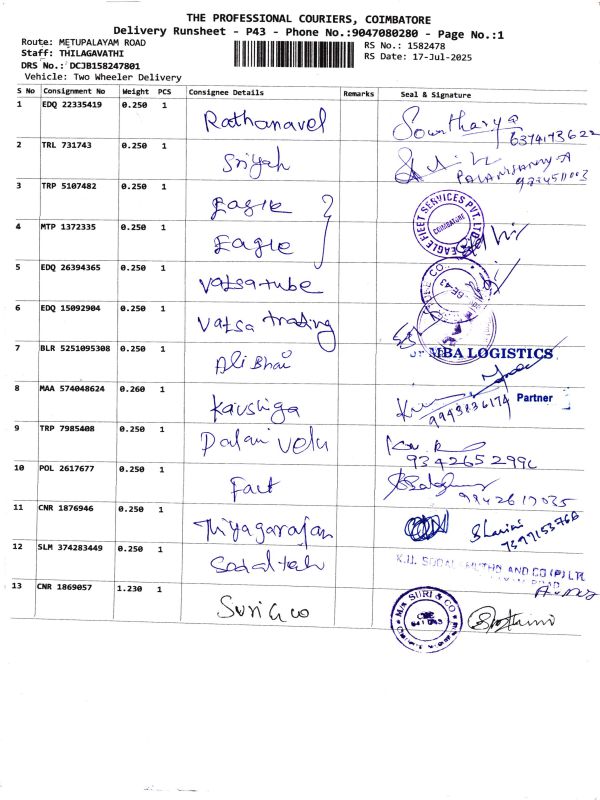 THE PROFESSIONAL COURIERS, COIMBATORE
Delivery Runsheet - P43 - Phone No.:9047080280 - Page No.:1
Route: METUPALAYAM ROAD
RS No.: 1582478
Staff: THILAGAVATHI
RS Date: 17-Jul-2025
DRS No.: DCJB158247801
Vehicle: Two Wheeler Delivery
S No Consignment No Weight PCS Consignee Details Remarks Seal & Signature
1 EDQ 22335419 0.250 1 Rathanavel Sowtharya
6374173622
2 TRL 731743 0.250 1 Sriyah
PALANISAMY A
3 TRP 5107482 0.250 1 Eagle EAGLE FLEET SERVICES PVT. LTD. COIMBATORE
4 MTP 1372335 0.250 1 Eagle
5 EDQ 26394365 0.250 1 Vatsa tube
6 EDQ 15092904 0.250 1 Vatsa trading
7 BLR 5251095308 0.250 1 Ali Bhai MBA LOGISTICS
8 MAA 574048624 0.260 1 Kaushiga 9943836174 Partner
9 TRP 7985408 0.250 1 Palani velu
10 POL 2617677 0.250 1 Fact
9942617035
11 CNR 1876946 0.250 1 Thiyagarajan
12 SLM 374283449 0.250 1 Sodaltech AND CO (P) LTD
13 CNR 1869057 1.230 1 Suri & co M/s SURI & CO